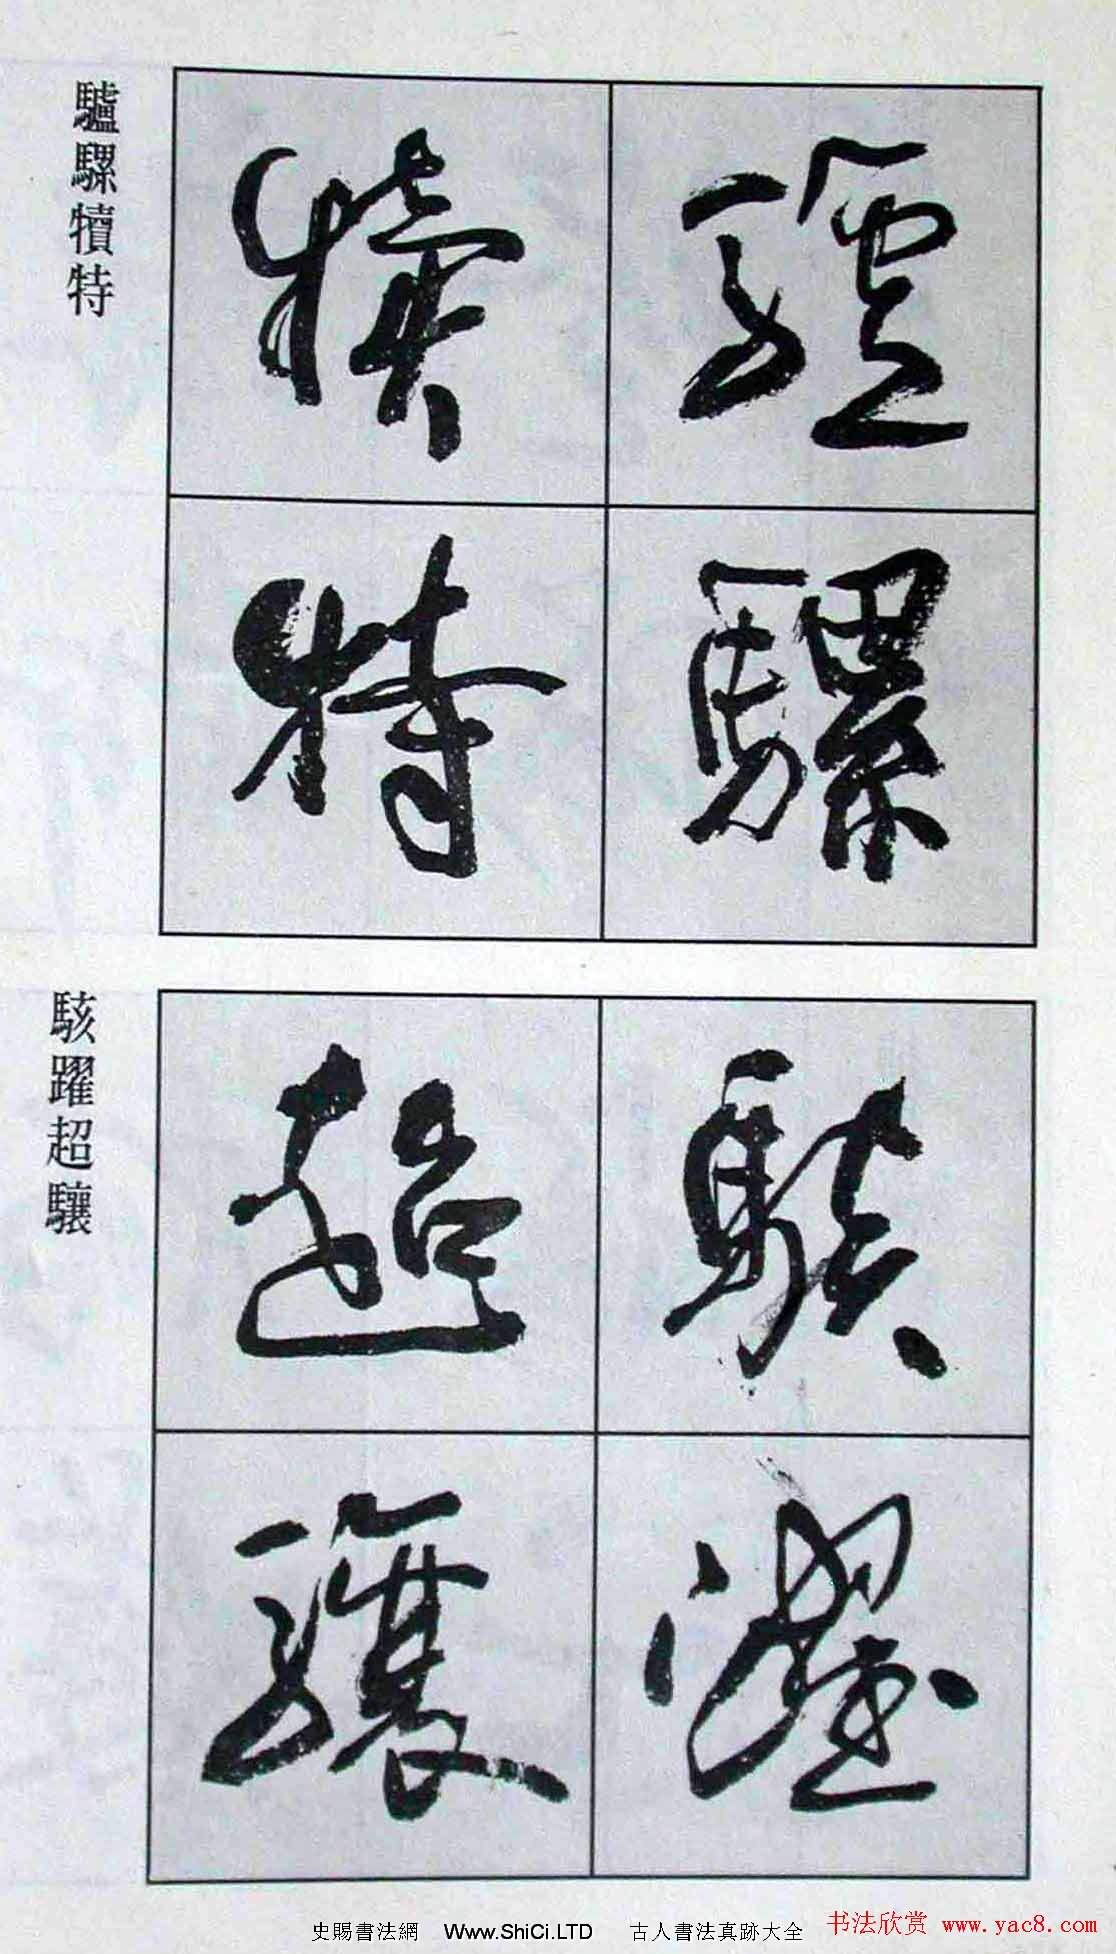 驢騾犢特
驢騾
犢特
駭躍超驤
駭躍
超驤
史賜書法網 Www.ShiCi.LTD 古人書法真跡大全
书法欣赏 www.yac8.com